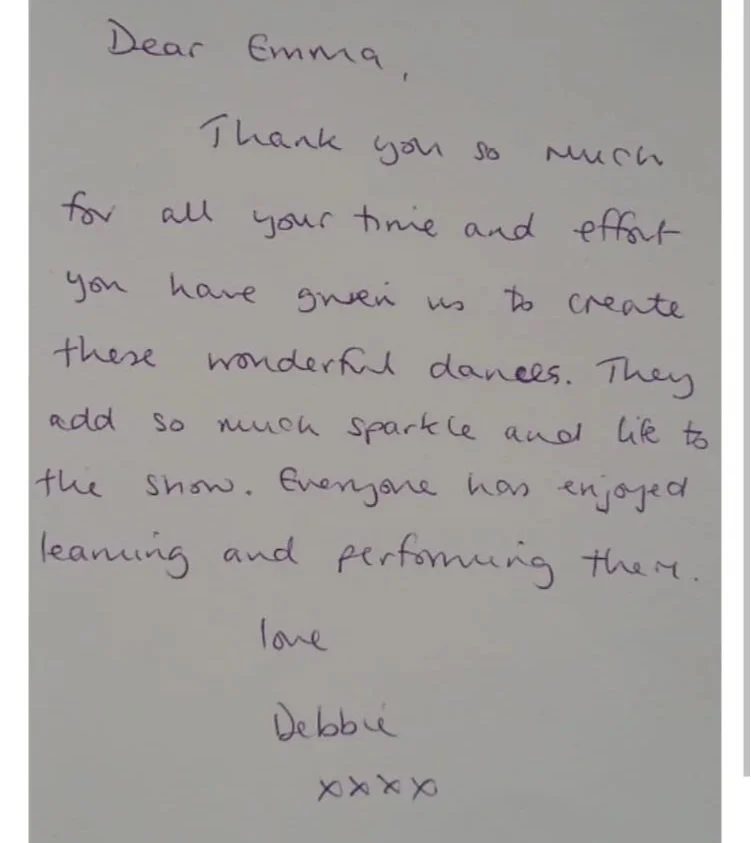 Dear Emma,
Thank you so much
for all your time and effort
you have given us to create
these wonderful dances. They
add so much sparkle and life to
the show. Everyone has enjoyed
learning and performing them.
love
Debbie
xxxx